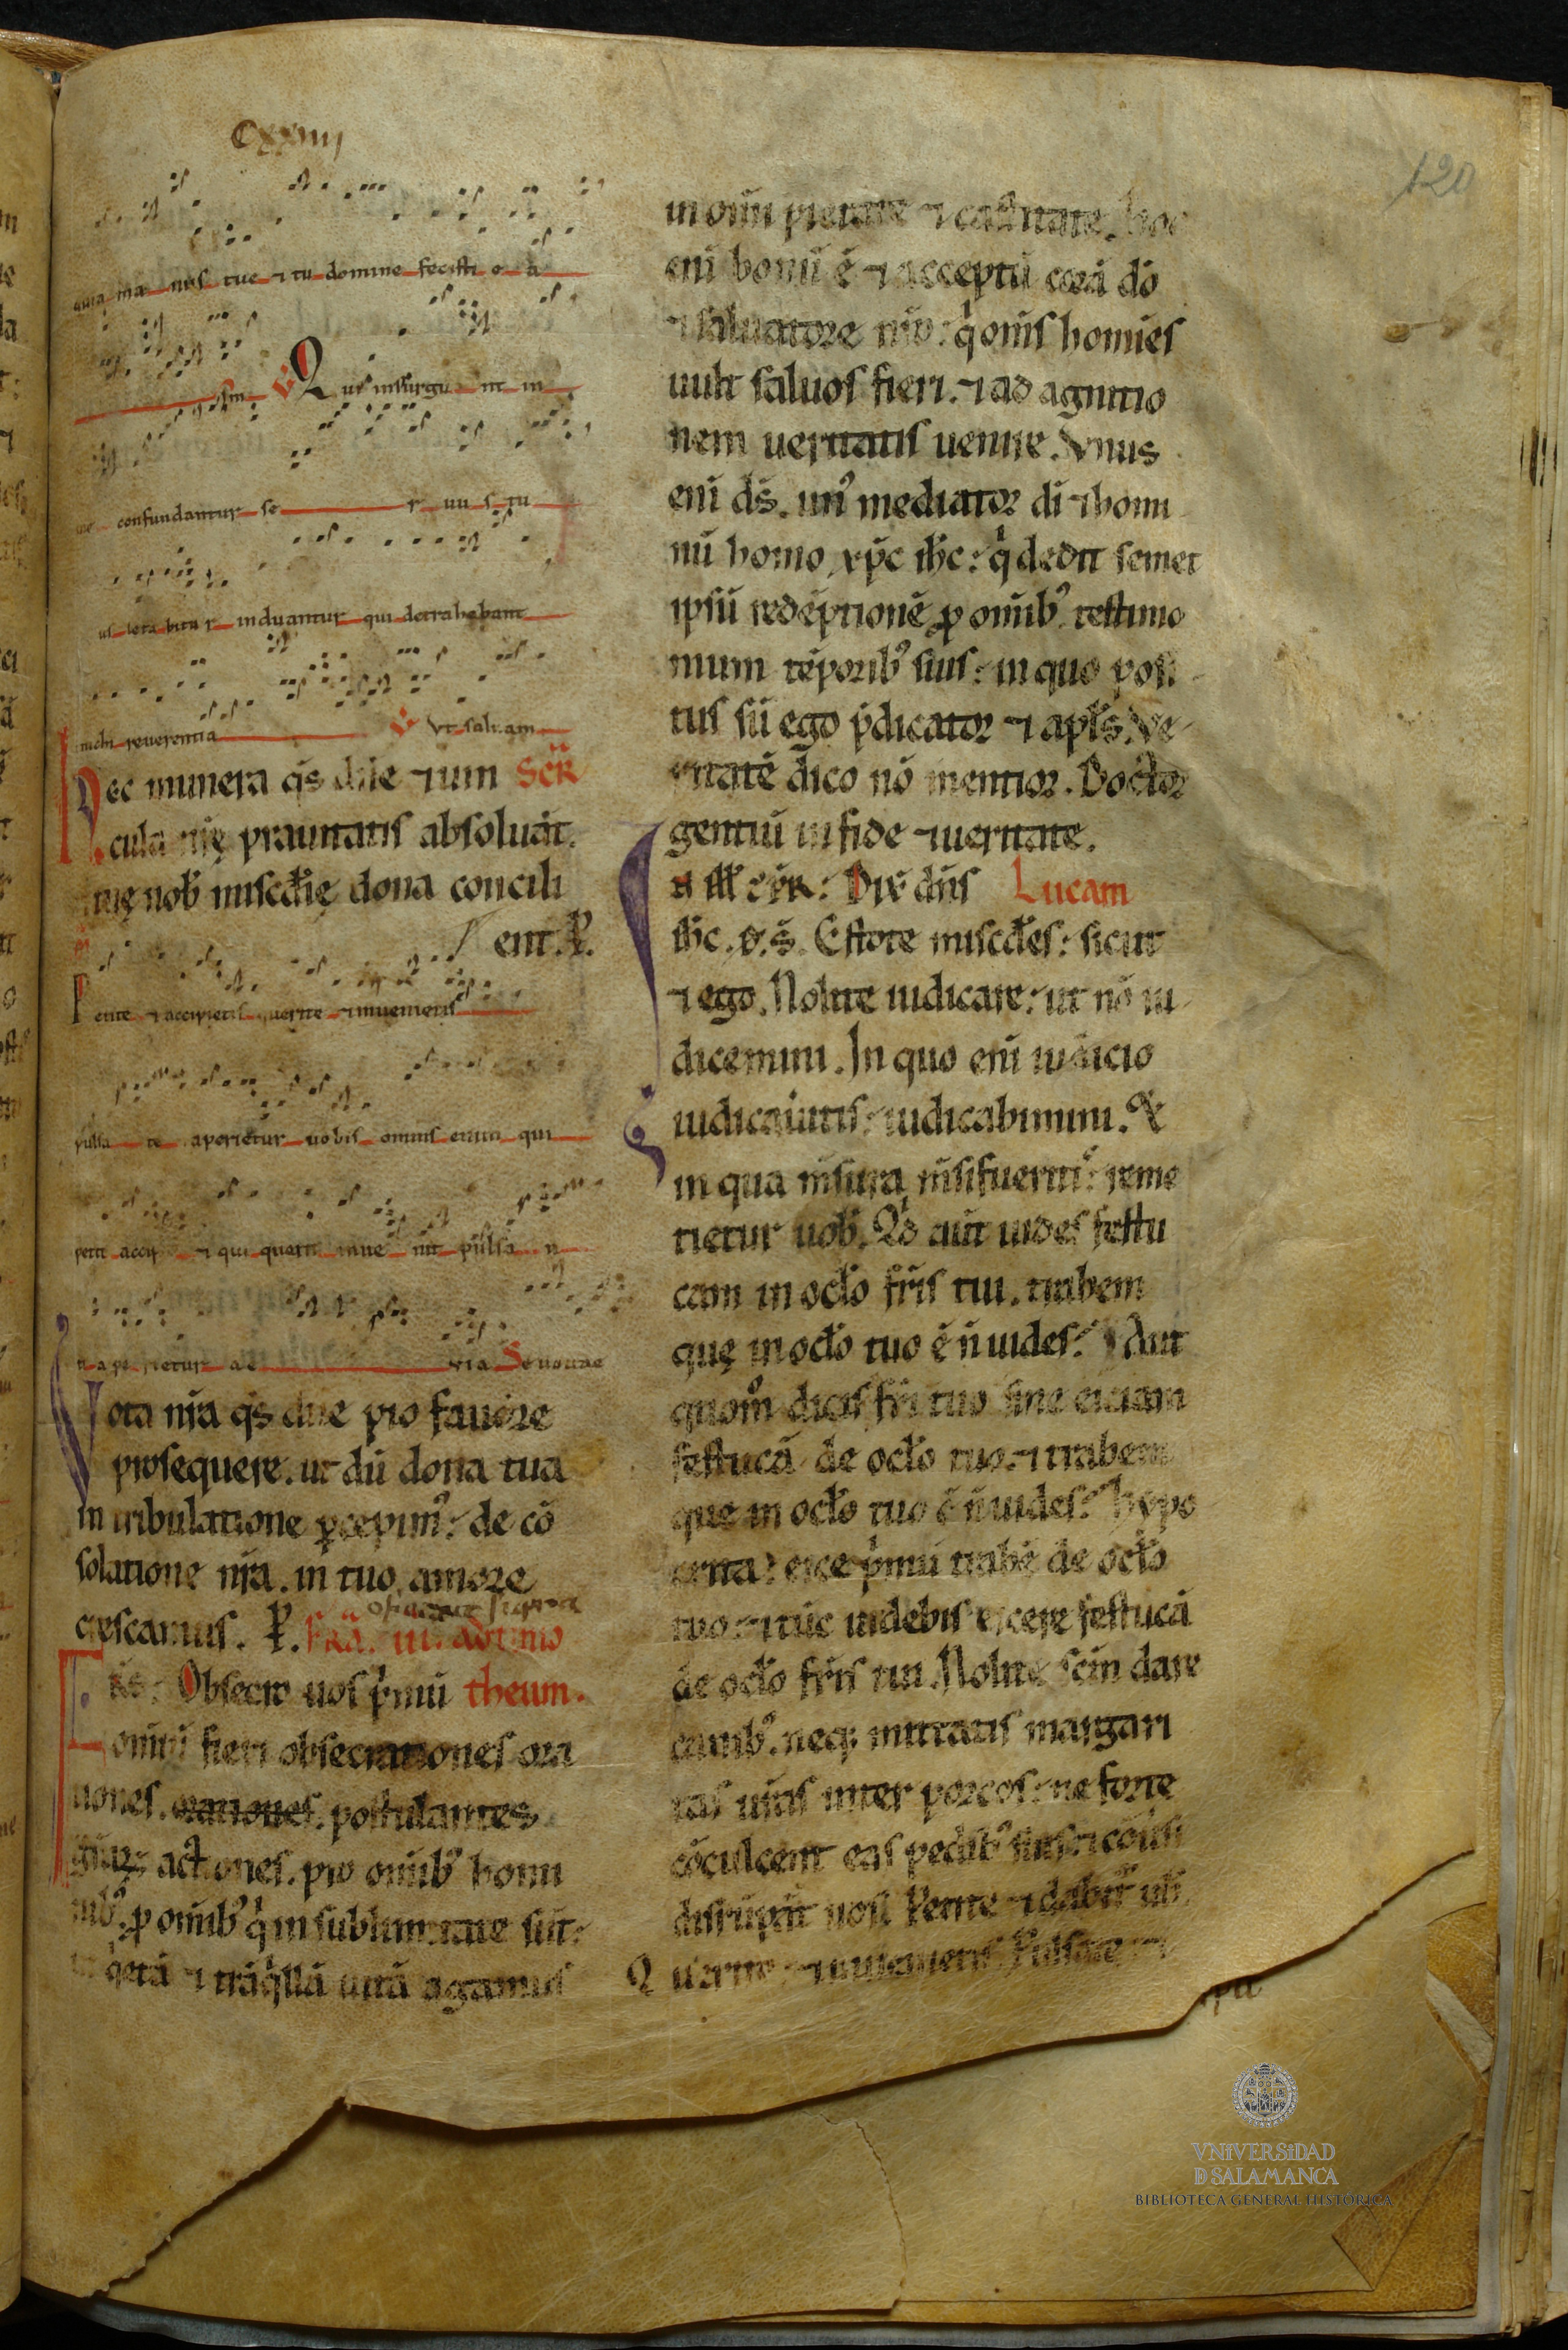 Cxxiiij
120
quia ma nus tue ⁊ tu domine fecisti e a
sm V Qui insurgu nt in
me confundantur se r uu s tu
us leta bitu r induantur qui detrahebant
michi reuerentia V Vt saluam
Hec munera q̄s dn̄e ⁊ uin Scr̄
cula nr̄ę prauitatis absoluāt.
tuę nob̄ misc̄dię dona concili
ent. P.
Petite ⁊ accipietis querite ⁊ inuenietis
pulsa te aperietur uobis omnis enim qui
petit accipi ⁊ qui querit inue nit pulsa n
ti ape rietur ae via Seuouae
Vota nr̄a q̄s dn̄e pio fauore
prosequere. ut dū dona tua
in tribulatione p̄cepim᷒: de cō
solatione nr̄a. in tuo amore
crescamus. P. Fr̄a. iii. ad timo
Fr̄s: Obsecro uos p̄mū theum.
omniū fieri obsecrationes ora
tiones. orationes. postulantes
gr̄arꝝ actiones. pro omib᷒ homi
nib᷒. ꝓ omib᷒ q̄ in sublimitate sūt:
ut q̄etā ⁊ trāq̄llā uitā agamus
in om̄i pietate ⁊ castitate. hoc
eni bonū ē ⁊ acceptū corā dō
⁊ saluatore nr̄o: q̄ om̄s homīes
uult saluos fieri. ⁊ ad agnitio
nem ueritatis uenire. Vnus
eni d̄s. un᷒ mediator dī ⁊ homi
nū homo xp̄c ih̄c: q̄ dedit semet
ipsū redēptionē ꝓ omib᷒. testimo
nium tēporib᷒ suis: in quo posi
tus sū ego p̄dicator ⁊ apl̄s. Ve
ritatē dico nō mentior. Doctor
gentiū in fide ⁊ ueritate.
Dix̄ dn̄s Lucam
ih̄c. d. s̄. Estote misc̄des: sicut
⁊ ego. Nolite iudicare: ut nō iu
dicemini. In quo eni iudicio
iudicauitis: iudicabimini. Et
in qua m̄sura m̄si fueritis: reme
tietur uob̄. Qd̄ aūt uides festu
cam in ocl̄o fr̄is tui. trabem
quę in ocl̄o tuo ē n̄ uides? Aut
quom̄ dicis fr̄i tuo sine eiciam
festucā de ocl̄o tuo. ⁊ trabem
que in ocl̄o tuo ē n̄ uides? hypo
crita: eice p̄mū trabē de ocl̄o
tuo. ⁊ tūc uidebis eicere festucā
de ocl̄o fr̄is tui. Nolite sc̄m dare
canib᷒. neq; mittatis margari
tas ur̄as inter porcos: ne forte
cōculcent eas pedib᷒ suis. ⁊ cōūsi
disrūpāt uos. Petite ⁊ dabit᷒ uob̄.
Querite: ⁊ inuenietis. Pulsate ⁊
VNiVERSiDAD
D SALAMANCA
BIBLIOTECA GENERAL HISTÓRICA